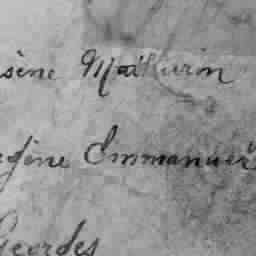 sène Mathurin
égine Emmanuel
Georges